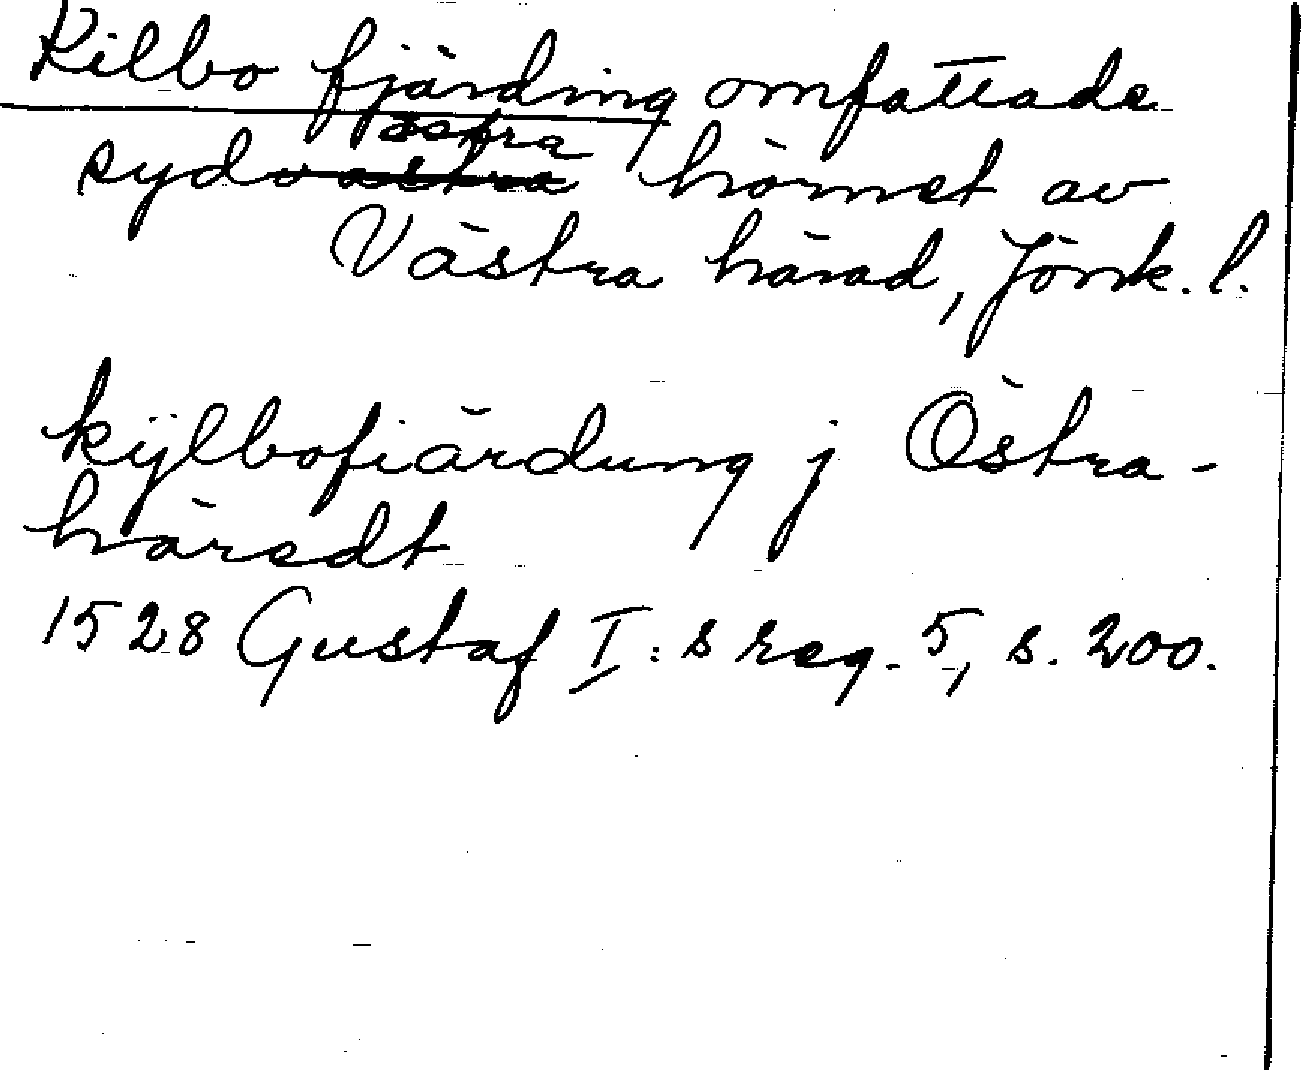 Kilbo fjärding omfattade
sydvästra östra hörnet av
Västra härad, Jönk. l.
kÿlbofiärdung j Östra-
häredt
1528 Gustaf I:s reg. 5, s. 200.